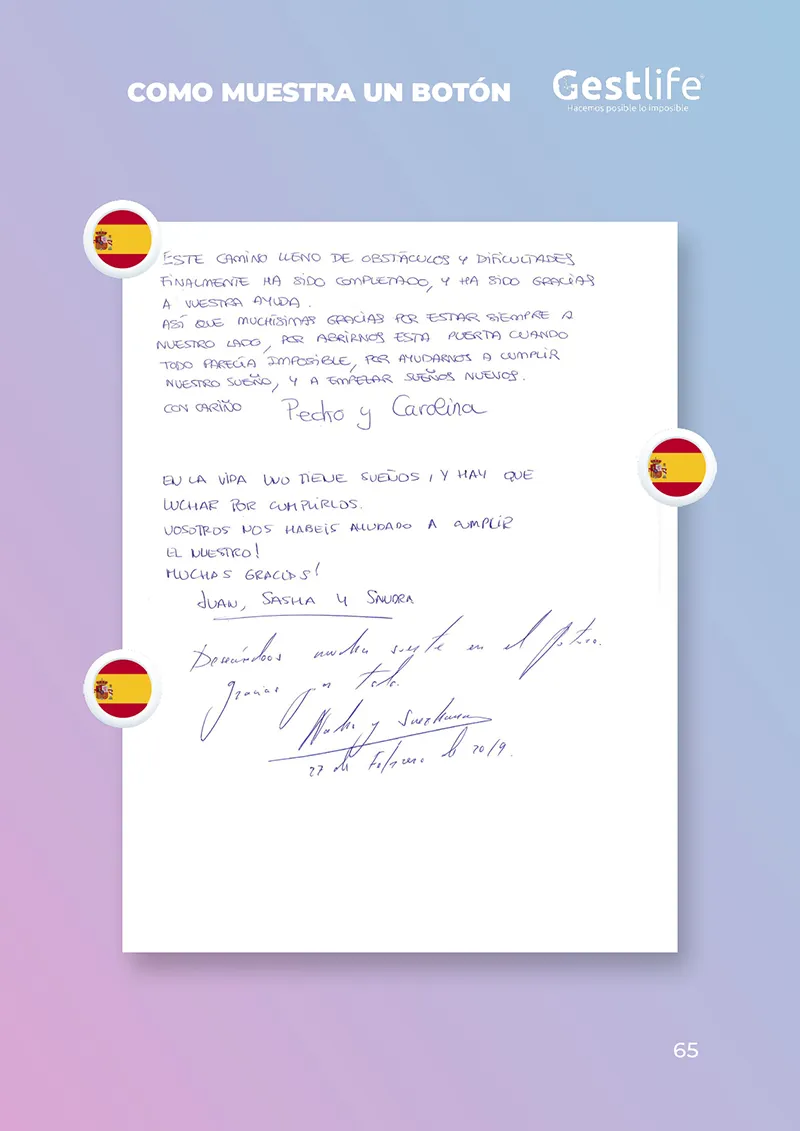 COMO MUESTRA UN BOTÓN
Gestlife
Hacemos posible lo imposible
ESTE CAMINO LLENO DE OBSTÁCULOS Y DIFICULTADES
FINALMENTE HA SIDO COMPLETADO, Y HA SIDO GRACIAS
A VUESTRA AYUDA.
ASÍ QUE MUCHÍSIMAS GRACIAS POR ESTAR SIEMPRE A
NUESTRO LADO, POR ABRIRNOS ESTA PUERTA CUANDO
TODO PARECÍA IMPOSIBLE, POR AYUDARNOS A CUMPLIR
NUESTRO SUEÑO, Y A EMPEZAR SUEÑOS NUEVOS.
CON CARIÑO Pedro y Carolina
EN LA VIDA UNO TIENE SUEÑOS, Y HAY QUE
LUCHAR POR CUMPLIRLOS.
VOSOTROS NOS HABEIS AYUDADO A CUMPLIR
EL NUESTRO!
MUCHAS GRACIAS!
JUAN, SASHA Y SANDRA
Deseándoos mucha suerte en el futuro.
Gracias por todo.
y
27 de Febrero de 2019.
65